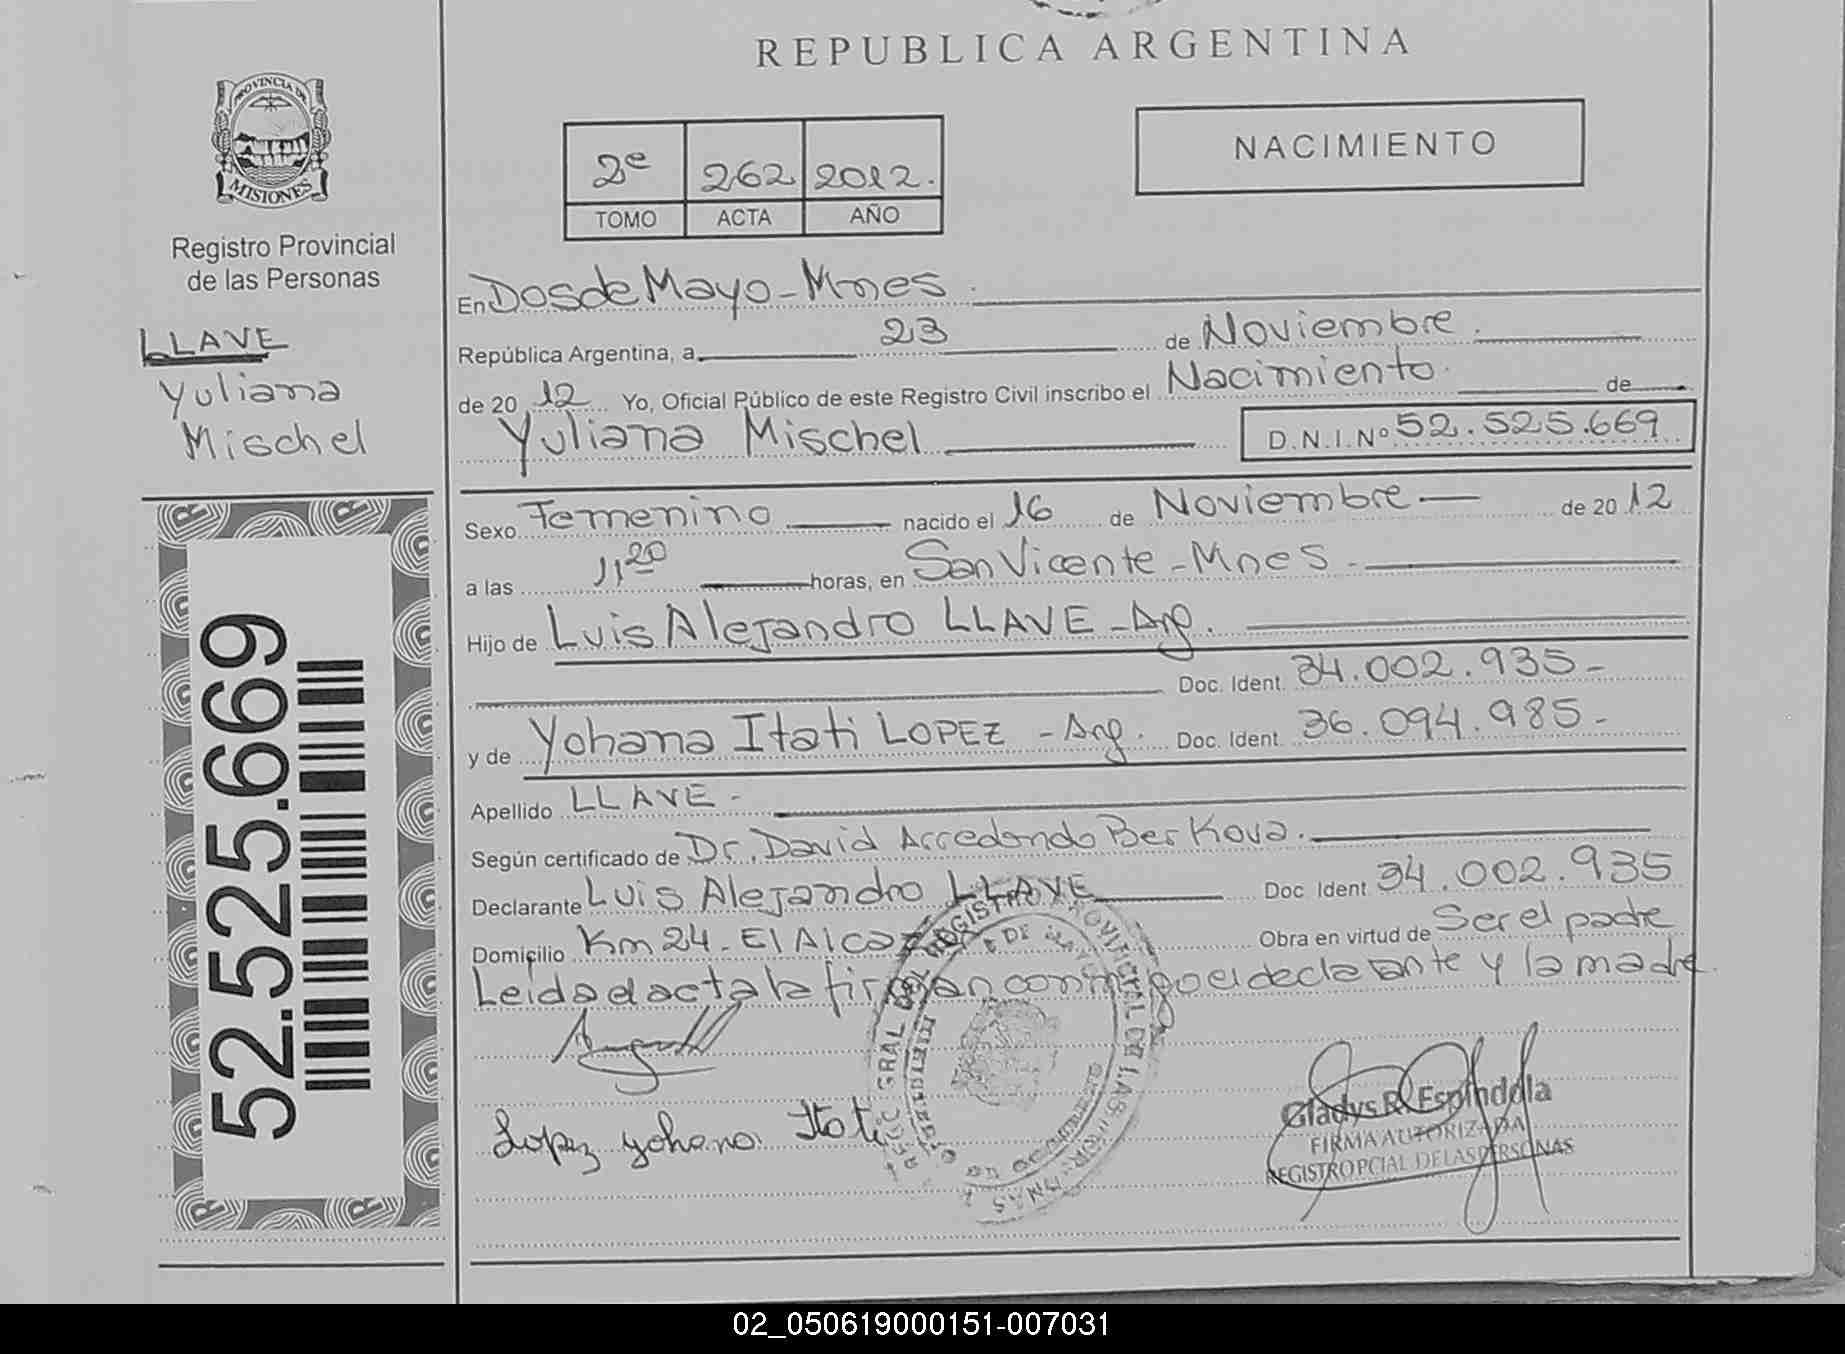 REPUBLICA ARGENTINA
PROVINCIA DE
MISIONES
Registro Provincial
de las Personas
LLAVE
Yuliana
Mischel
52.525.669
2º 262 2012.
TOMO ACTA AÑO
NACIMIENTO
En Dos de Mayo - Mnes
República Argentina, a 23 de Noviembre
de 20 12 Yo, Oficial Público de este Registro Civil inscribo el Nacimiento de
Yuliana Mischel D.N.I. Nº 52.525.669
Sexo Femenino nacido el 16 de Noviembre de 20 12
a las 11 20 horas, en San Vicente - Mnes
Hijo de Luis Alejandro LLAVE - Arg.
Doc. Ident. 34.002.935-
y de Yohana Itati LOPEZ - Arg. Doc. Ident. 36.094.985-
Apellido LLAVE -
Según certificado de Dr. David Arredondo Ber Kova.
Declarante Luis Alejandro LLAVE Doc. Ident 34.002.935
Domicilio Km 24 - El Alcazar Obra en virtud de Ser el padre
Leida el acta la firman conmigo el declarante y la madre
Lopez yohana Itati
Gladys R. Espindola
FIRMA AUTORIZADA
REGISTRO PCIAL DE LAS PERSONAS
02_050619000151-007031